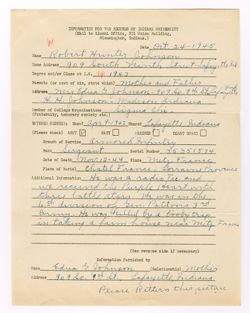 INFORMATION FOR WAR RECORDS OF INDIANA UNIVERSITY
(Mail to Alumni Office, Union Building,
Bloomington, Indiana.)
Date Oct. 24-1945
Name Robert Hunter Johnson
Home Address 909 South Ninth Street Lafayette Ind
Degree and/or Class at I.U. 1943
Next of Kin Mother and Father
Mrs Edna G. Johnson 909 So. 9th St Lafayette
H. H. Johnson Indiana
Member of College Organizations
(Fraternity, Honorary society etc.) Sigma Chi
Lafayette, Indiana
(Please Check) ARMY NAVY MARINES COAST GUARD
Branch of Service Armored Infantry
Rank Sergeant Serial No.
Date of Death Nov. 12-44 Place Metz France
Place of Burial
Additional Information He was a radio
we received the Purple Heart with
three battle stars. He was in the
6th division of Gen Patton's 3rd
Army. He was killed by a booby trap
in taking a farm house near Metz France
(Use reverse side if necessary)
Information furnished by
Name Edna G Johnson (Relationship) Mother
Address 909 So. 9th St. Lafayette Indiana
Please Return this picture